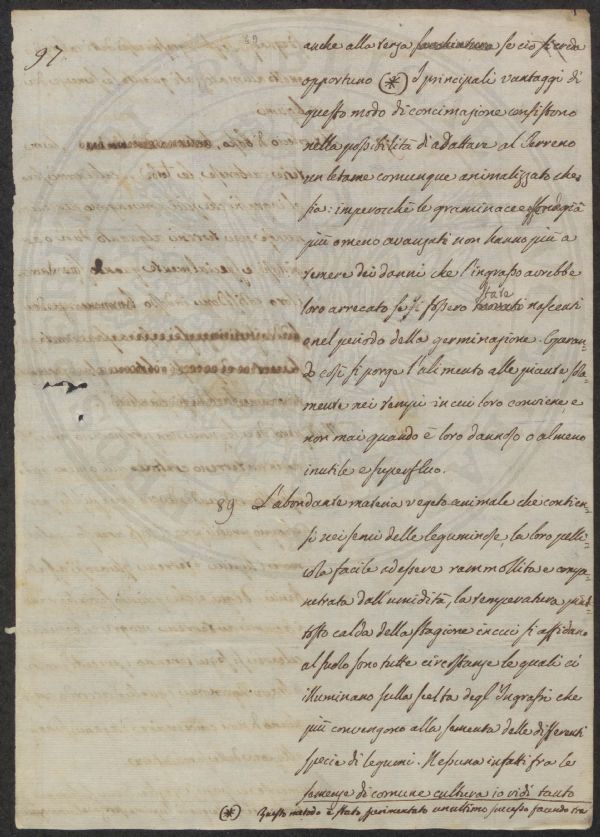 97.
anche alla terza se ciò si creda
opportuno (*) I principali vantaggi di
questo modo di concimazione consistono
nella possibilità di adattare al Terreno
un letame comunque animalizzato che
sia: imperocchè le graminacee essendo già
più o meno avanzate non hanno più a
temere dei danni che l'ingrasso avrebbe
loro arrecato se si fossero state nascenti
e nel periodo della germinazione. Operan-
do così si porge l'alimento alle piante sola
mente nei tempi in cui loro conviene, e
non mai quando è loro dannoso o almeno
inutile e superfluo.
89 L'abondante materia vegeto animale che contien-
si nei semi delle leguminose, la loro pelli-
cola facile ad essere rammollita e compe-
netrata dall'umidità, la temperatura piut-
tosto calda della stagione in cui si affidano
al suolo sono tutte circostanze le quali ci
illuminano sulla scelta degl'Ingrassi che
più convengono alla sementa delle differenti
specie di legumi. Nessuna infatti fra le
semenze di comune cultura io vidi tanto
(*) Questo metodo è stato sperimentato un ultimo successo facendo